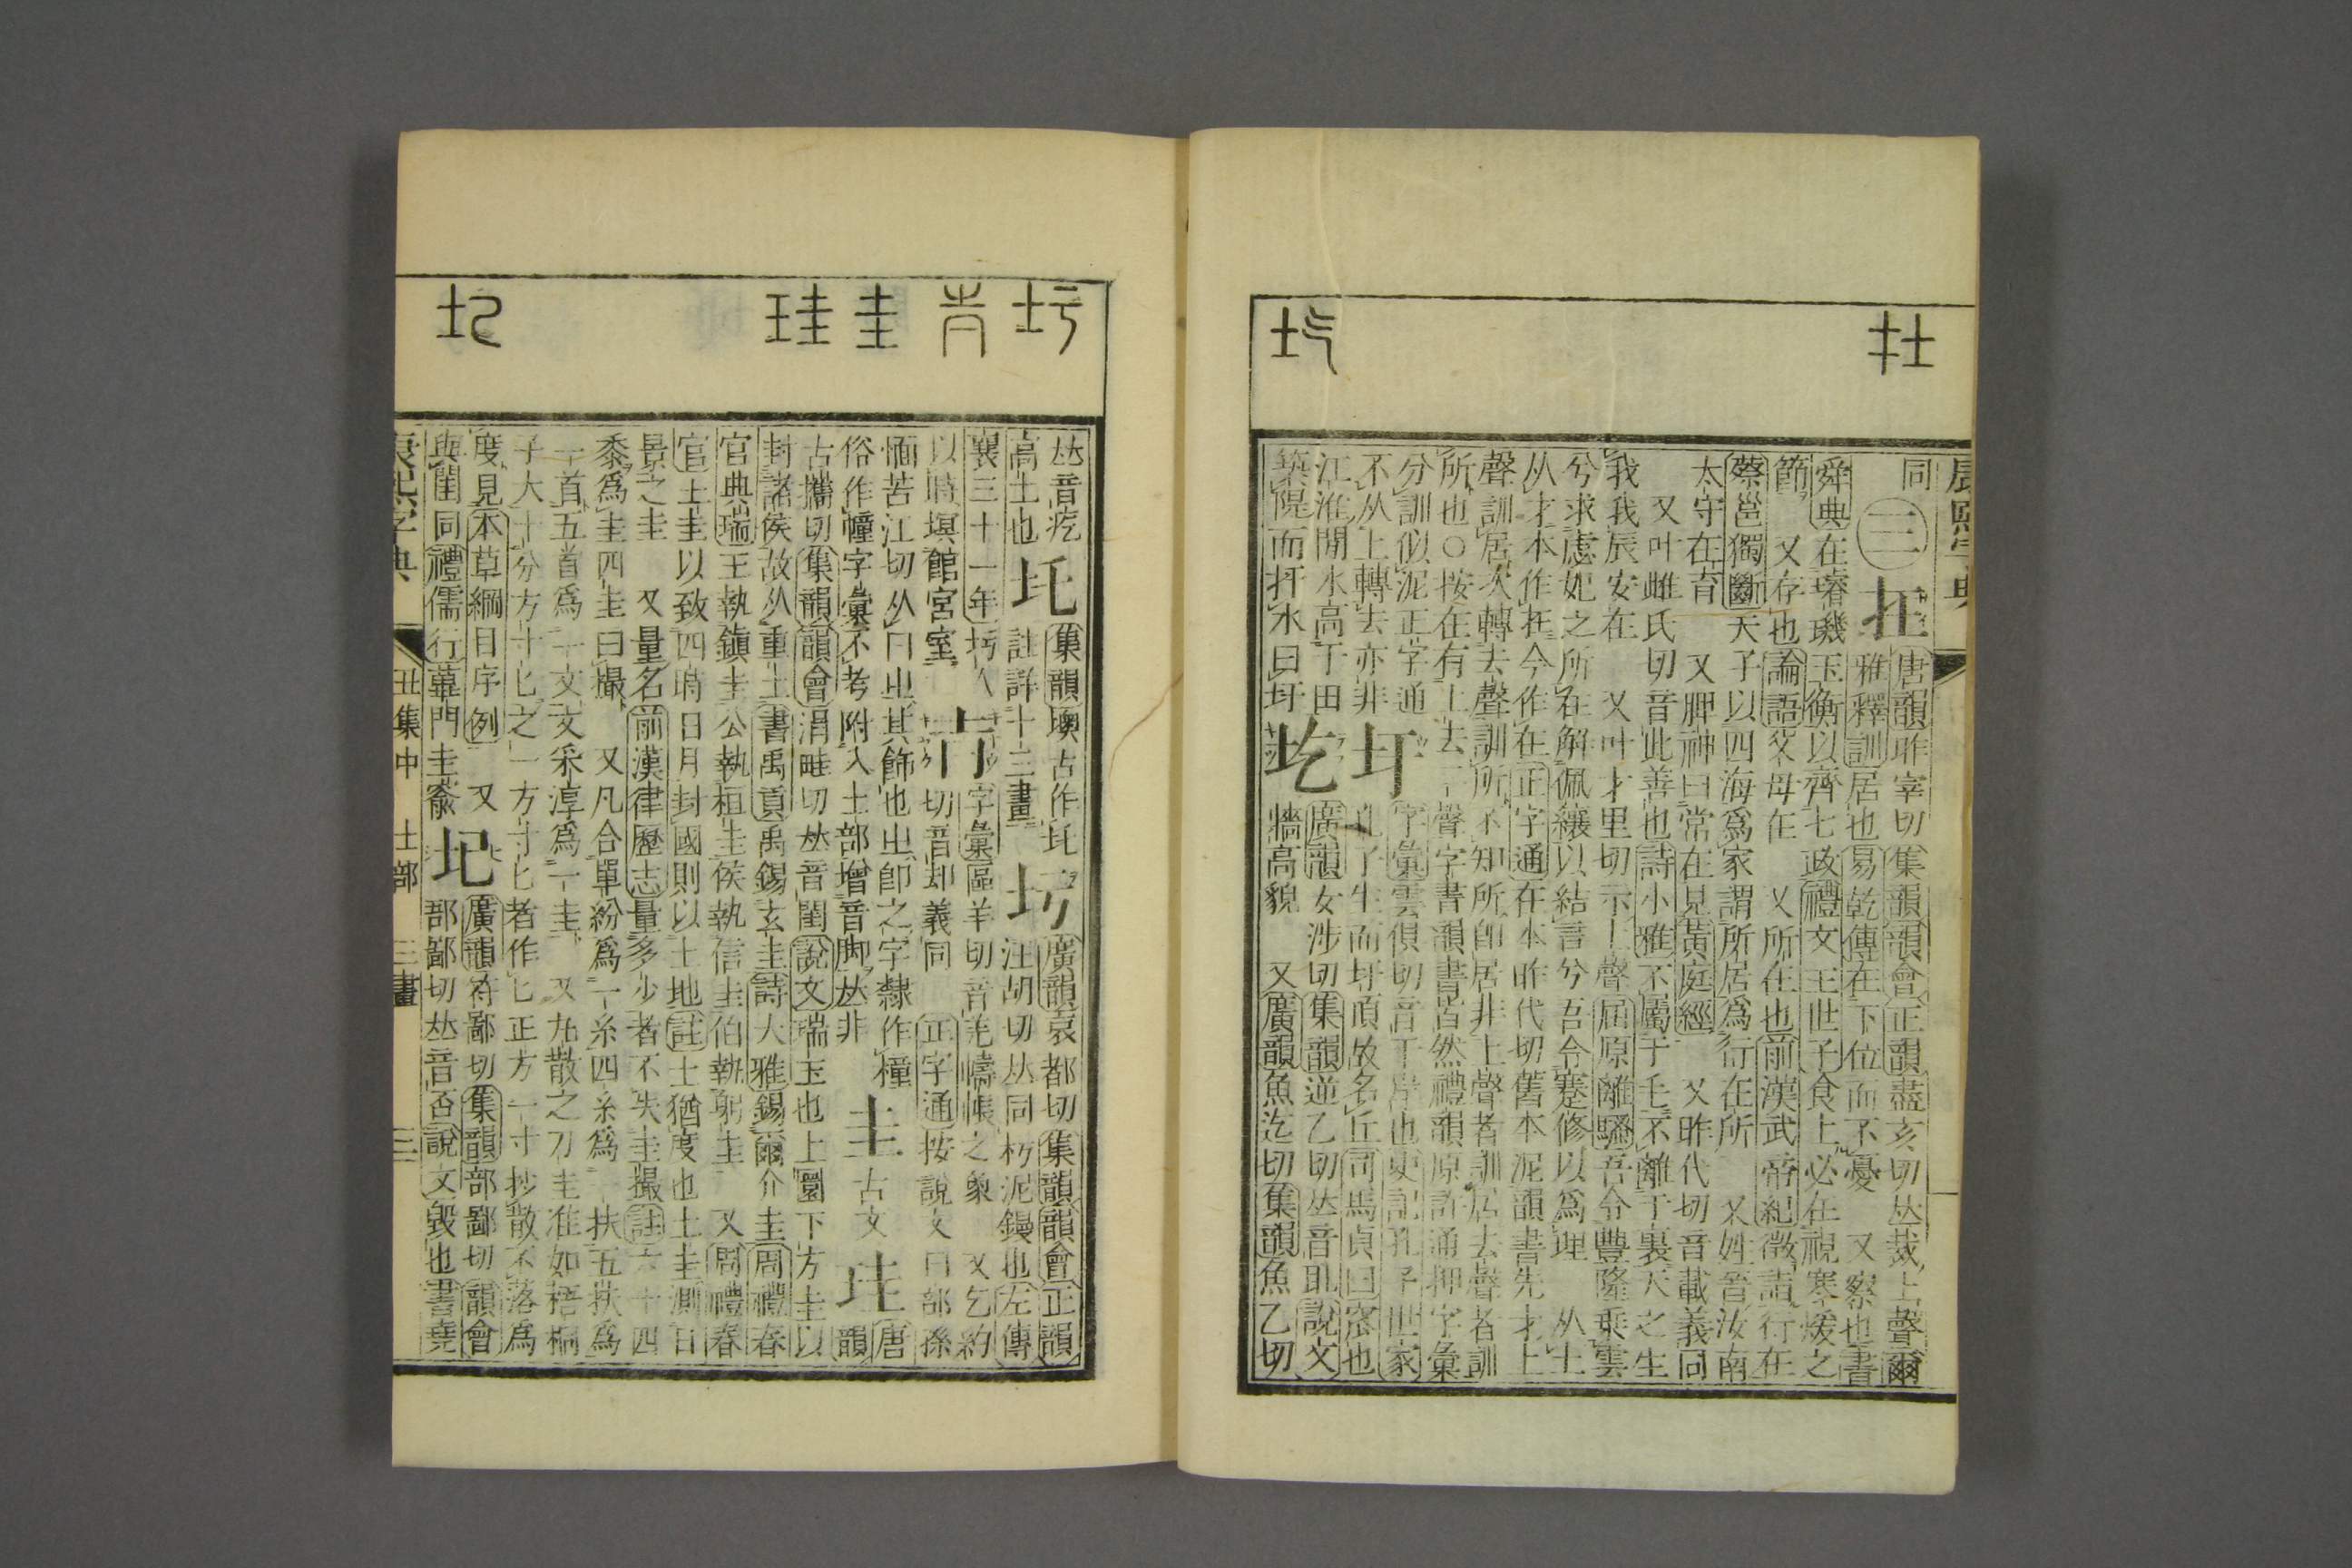 康熙字典
在
圪
同
三
在
唐韻昨宰切集韻韻會正韻盡亥切𠀤裁上聲爾
雅釋訓居也易乾傳在下位而不憂 又察也書
舜典在璿璣玉衡以齊七政禮文王世子食上必在視寒煖之
節 又存也論語父母在 又所在也前漢武帝紀徵詣行在
蔡邕獨斷天子以四海爲家謂所居爲行在所 又姓晉汝南
太守在育 又胛神曰常在見黃庭經 又昨代切音載義同
又叶雌氏切音此善也詩小雅不屬于毛不離于裏天之生
我我辰安在 又叶才里切示上聲屈原離騷吾令豐隆乗雲
兮求虙妃之所在解佩纕以結言兮吾令蹇修以爲理 从土
从才本作扗今作在正字通在本昨代切舊本泥韻書先才上
聲訓居次轉去聲訓所不知所卽居非上聲者訓居去聲者訓
所也○按在有上去二聲字書韻書皆然禮韻原許通押字彙
分訓似泥正字通
不从上轉去亦非
圩
字彙雲俱切音于岸也史記孔子世家
孔子生而圩頂故名丘司馬貞曰窊也
江淮閒水高于田
築隄而扞水曰圩
圪
廣韻女涉切集韻逆乙切𠀤音耴說文
牆高貌 又廣韻魚迄切集韻魚乙切
圬
圭
珪
圮
𠀤音疙
高土也
圫
集韻墺古作圫
註詳十三畫
圬
廣韻哀都切集韻韻會正韻
汪胡切𠀤同杇泥鏝也左傳
襄三十一年圬人
以時塓館宮室
字彙區羊切音羌幬帳之象 又乞約
切音却義同 正字通按說文𠔼部孫
愐苦江切从𠔼㞢其飾也㞢卽之字隸作㡖
俗作幢字彙不考附入土部增音脚𠀤非
圭
古文
珪
唐
韻
古攜切集韻韻會涓畦切𠀤音閨說文瑞玉也上圜下方圭以
封諸侯故从重土書禹貢禹錫玄圭詩大雅錫爾介圭周禮春
官典瑞王執鎭圭公執桓圭侯執信圭伯執躬圭 又周禮春
官土圭以致四時日月封國則以土地註土猶度也土圭測日
景之圭 又量名前漢律歷志量多少者不失圭撮註六十四
黍爲圭四圭曰撮 又凡合單紛爲一糸四糸爲一扶五扶爲
一首五首爲一文文采淳爲一圭 又丸散之刀圭准如梧桐
子大十分方寸匕之一方寸匕者作匕正方一寸抄散不落爲
度見本草綱目序例 又
與閨同禮儒行蓽門圭窬
圮
廣韻符鄙切集韻部鄙切韻會
部鄙切𠀤音否說文毀也書堯
康熙字典 丑集中 土部 三畫 三